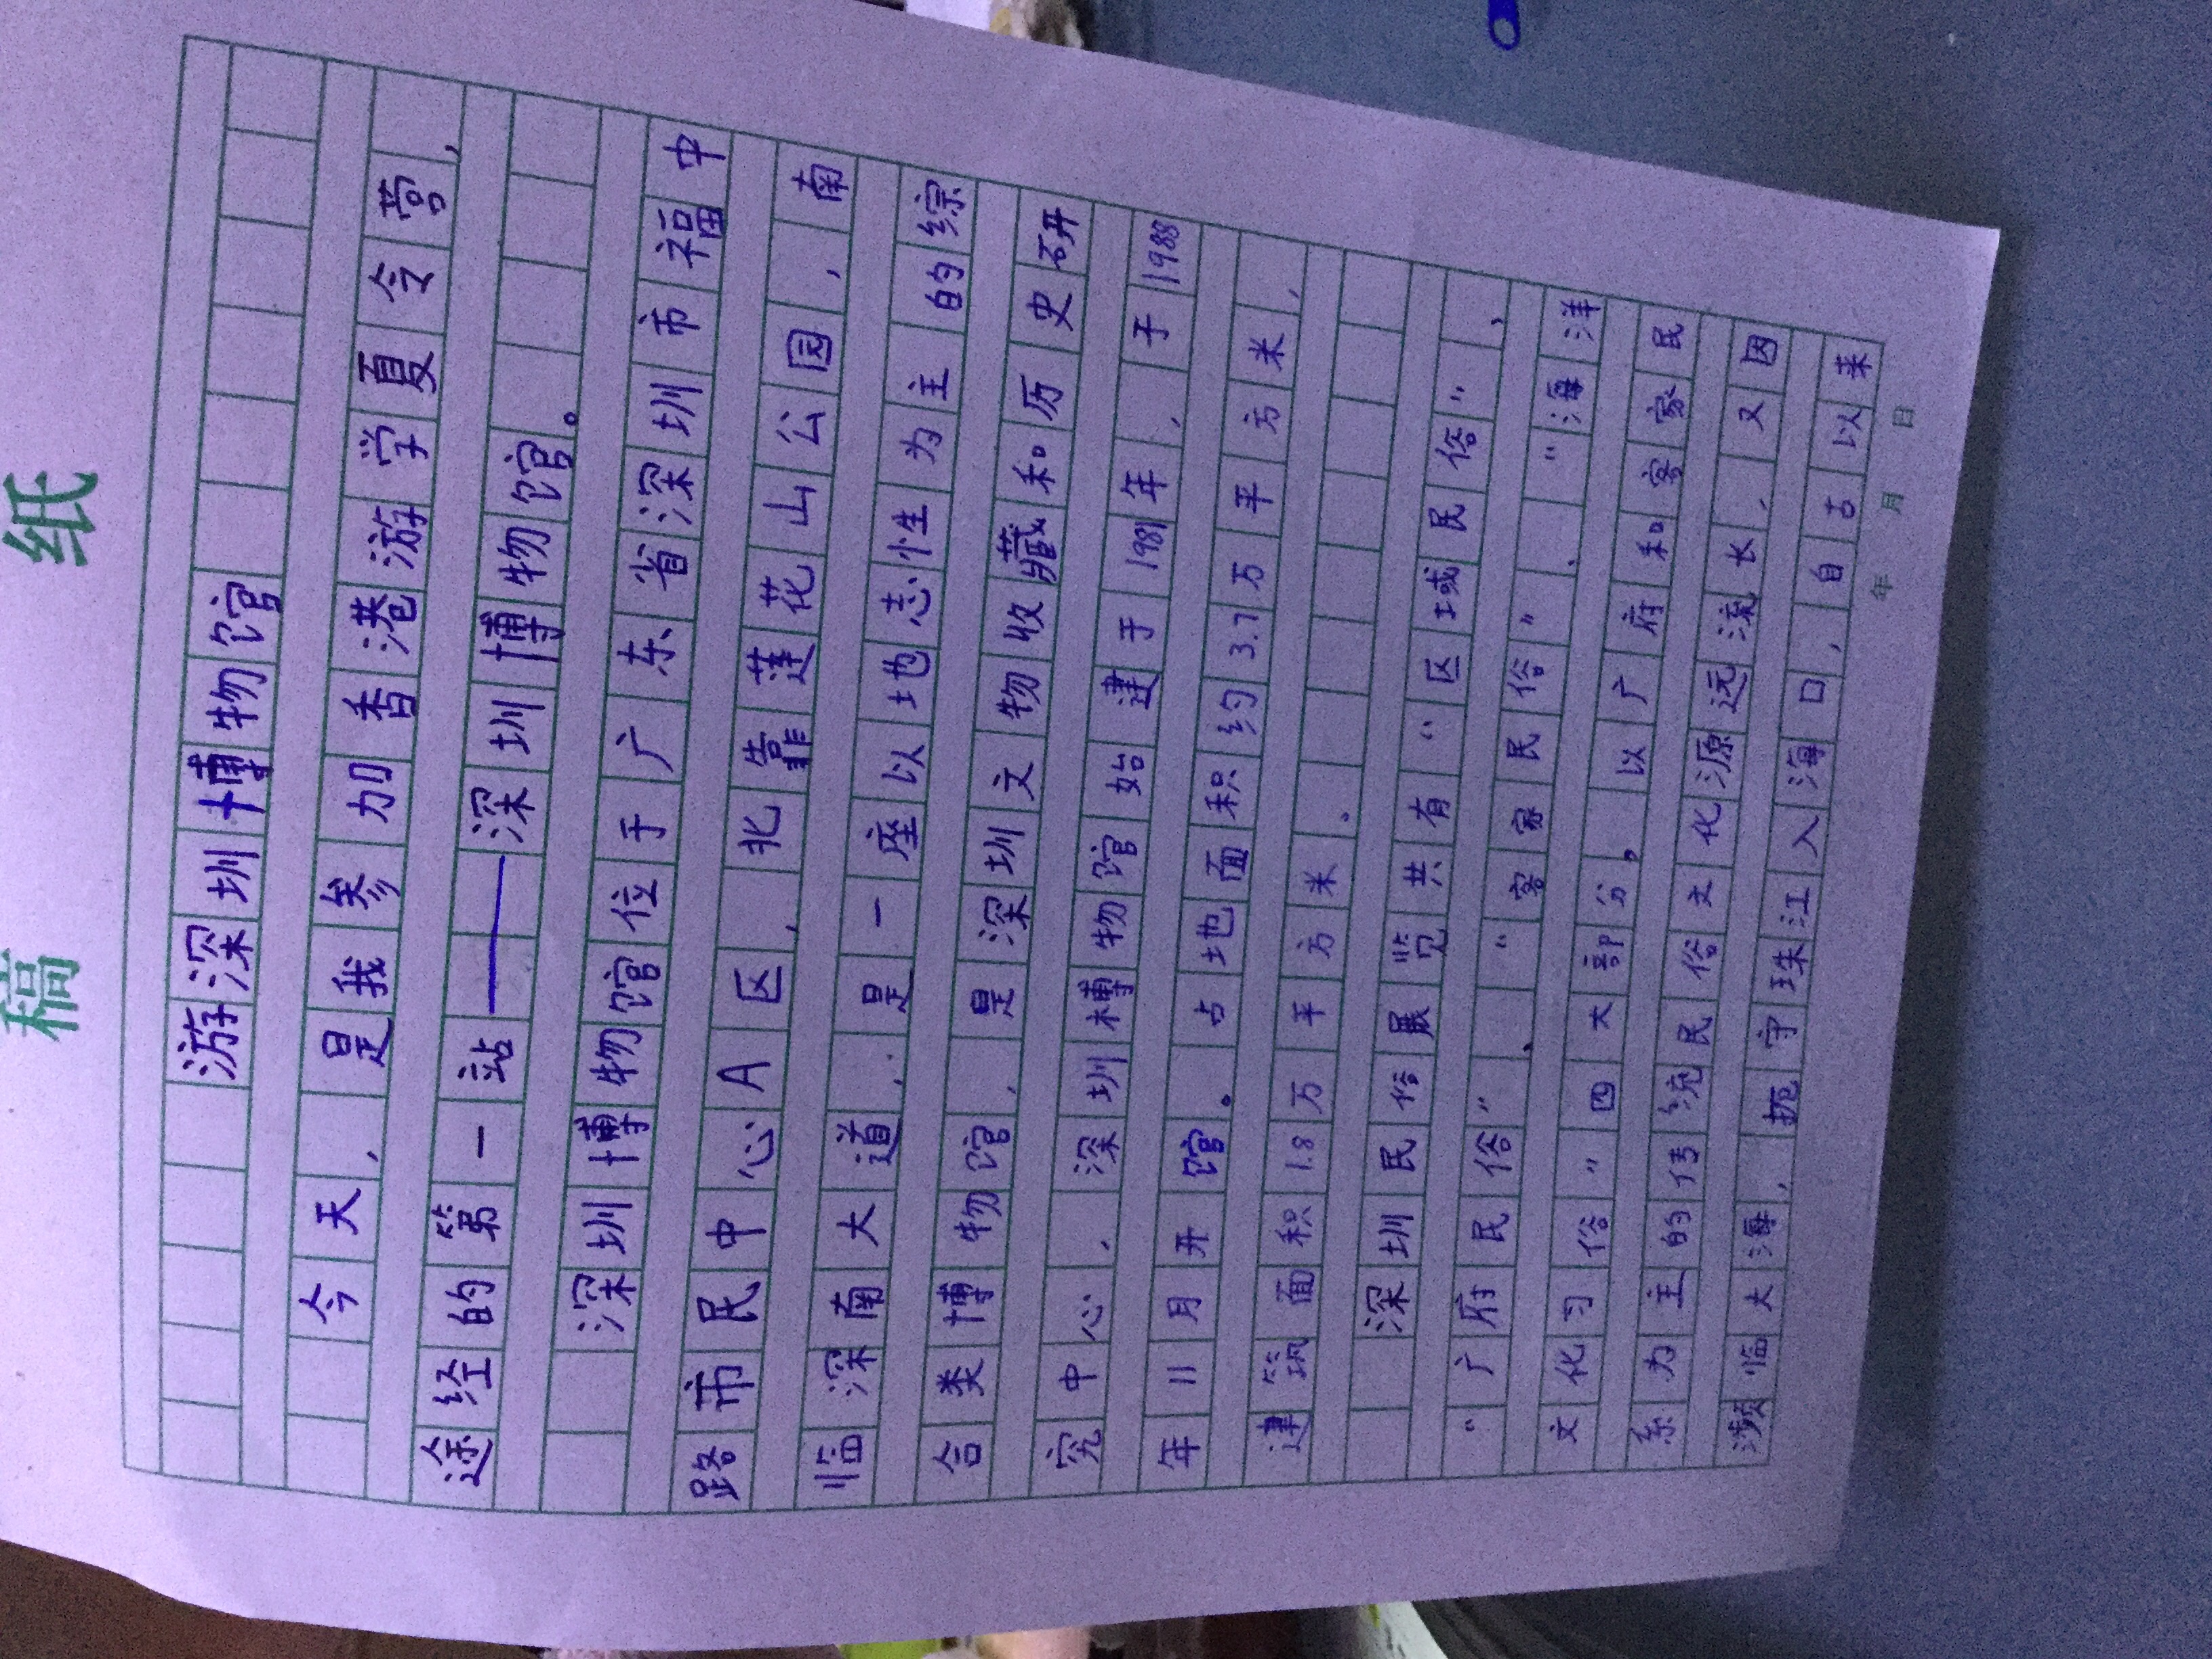 稿 纸
游深圳博物馆
今天，是我参加香港游学夏令营，
途经的第一站——深圳博物馆。
深圳博物馆位于广东省深圳市福中
路市民中心A区，北靠莲花山公园，南
临深南大道，是一座以地志性为主的综
合类博物馆，是深圳文物收藏和历史研
究中心，深圳博物馆始建于1981年，于1988
年11月开馆。占地面积约3.7万平方米，
建筑面积1.8万平方米。
深圳民俗展览共有“区域民俗”，
“广府民俗”、“客家民俗”、“海洋
文化习俗”四大部分，以广府和客家民
系为主的传统民俗文化源远流长，又因
濒临大海，扼守珠江入海口，自古以来
年 月 日